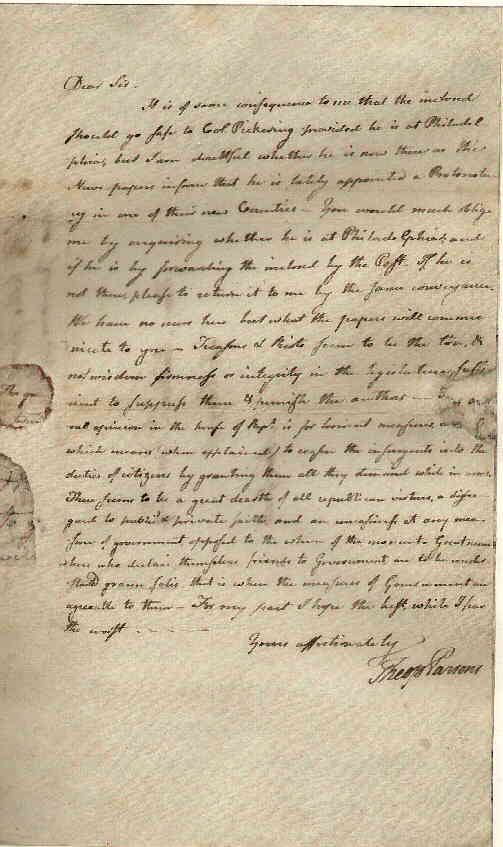 Dear Sir.
It is of some consequence to me that the inclosed
should go safe to Col. Pickering provided he is at Philadel
phia, but I am doubtful whether he is now there as the
News papers inform that he is lately appointed a Protonota
ry in one of their new Counties — You would much oblige
me by enquiring whether he is at Philadelphia, and
if he is by forwarding the inclosed by the Post. If he is
not there, please to return it to me by the same conveyance.
We have no news here but what the papers will commu
nicate to you — Treasons & Riots seem to be the Ton, &
no wisdom firmness or integrity in the legislature, suffi
cient to suppress them & punish the authors —
ral opinion in the house of Reps. is for lenient measures,
which means (when explained) to coax the insurgents into the
duties of citizens by granting them all they demand which in
There seems to be a great dearth of all republican virtues, a disre
gard to public & private faith, and an uneasiness at any mea
sure of government opposed to the whim of the moment. Great
here who declare themselves friends to Government are to be under
stood grano salis, that is when the measures of Government are
agreeable to them — For my part I hope the best, while I fear
the worst.
Yours affectionately
Theop Parsons